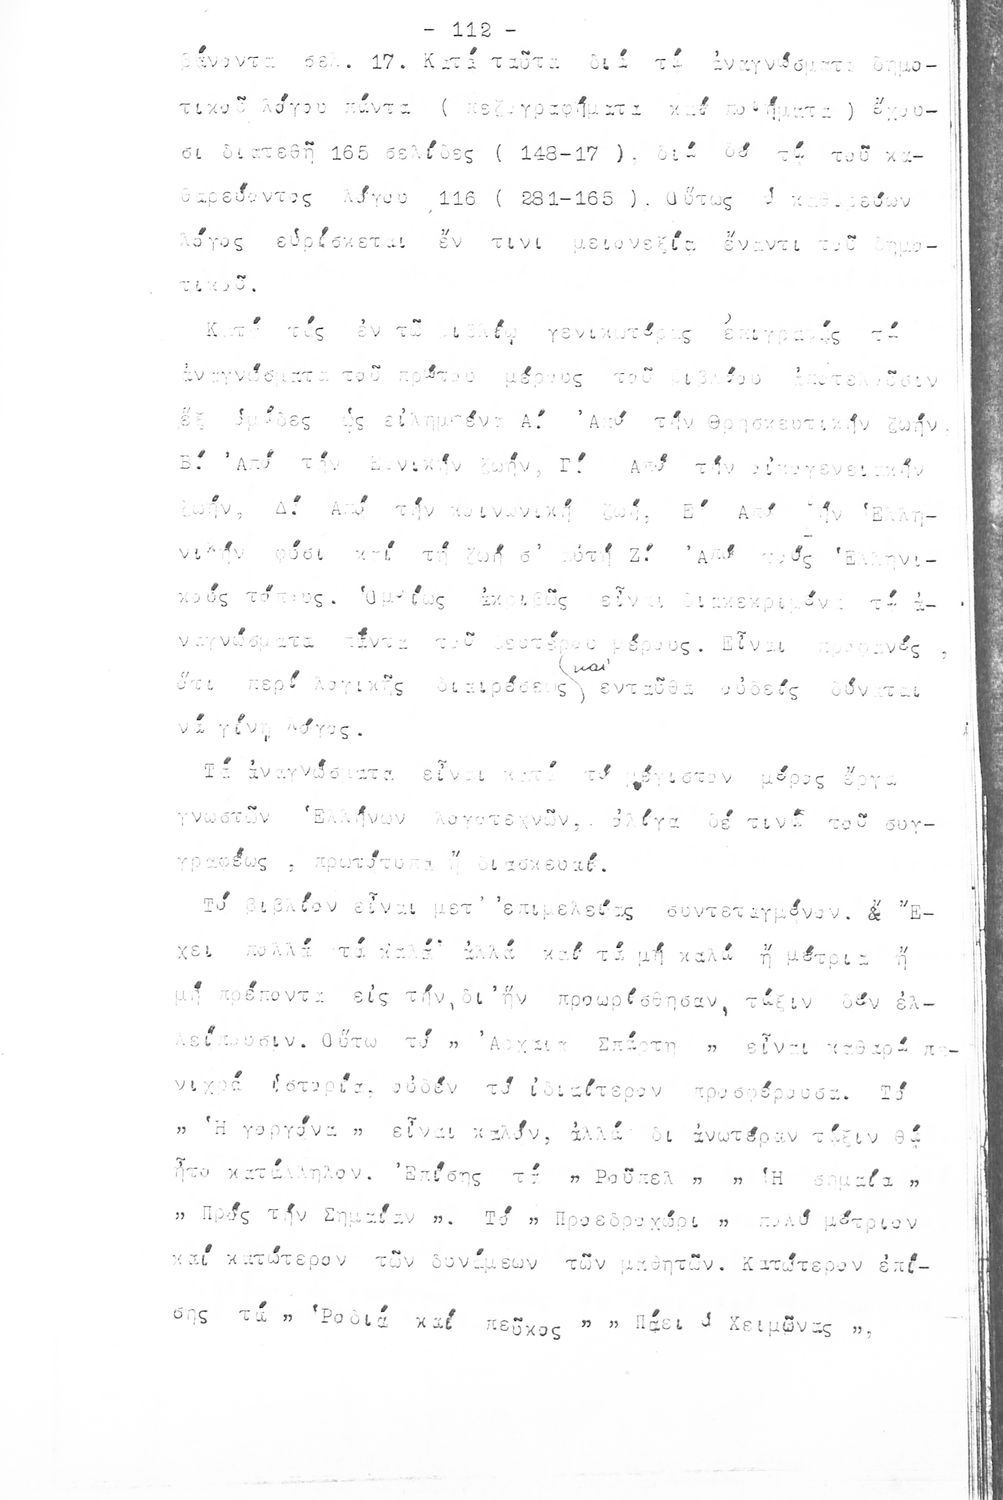 - 112 -
βάνοντα σελ. 17. Κατά ταῦτα διά τά ἀναγνώσματα δημο-
τικοῦ λόγου πάντα ( πεζογραφήματα καί ποιήματα ) ἔχου-
σι διατεθῆ 165 σελίδες ( 148-17 ). διά δέ τά τοῦ κα-
θαρεύοντος λόγου 116 ( 281-165 ). Οὕτως ὁ καθαρεύων
λόγος εὑρίσκεται ἔν τινι μειονεξίᾳ ἔναντι τοῦ δημο-
τικοῦ.
Κατά τάς ἐν τῶ βιβλίῳ γενικωτέρας ἐπιγραφάς τά
ἀναγνώσματα τοῦ πρώτου μέρους τοῦ βιβλίου ἀποτελοῦσιν
ἕξ ὁμάδες ὡς εἰλημμένα Α΄. Ἀπό τήν Θρησκευτικήν ζωήν,
Β΄. Ἀπό τήν Ἐθνικήν ζωήν, Γ΄. Ἀπό τήν οἰκογενειακήν
ζωήν, Δ΄. Ἀπό τήν κοινωνική ζωή, Ε΄ Ἀπό τήν Ἑλλη-
νικήν φύσι καί τή ζωή σ' αὐτή Ζ΄. Ἀπό τούς Ἑλληνι-
κούς τόπους. Ὁμοίως ἀκριβῶς εἶναι διακεκριμένα τά ἀ-
ναγνώσματα πάντα τοῦ δευτέρου μέρους. Εἶναι προφανές ,
ὅτι περί λογικῆς διαιρέσεως καί ἐνταῦθα οὐδείς δύναται
νά γίνῃ λόγος.
Τά ἀναγνώσματα εἶναι κατά τό μέγιστον μέρος ἔργα
γνωστῶν Ἑλλήνων λογοτεχνῶν, ὀλίγα δέ τινά τοῦ συγ-
γραφέως , πρωτότυπα ἤ διασκευαί.
Τό βιβλίον εἶναι μετ' ἐπιμελείας συντεταγμένον. & Ἔ-
χει πολλά τά καλά ἀλλά καί τά μή καλά ἤ μέτρια ἤ
μή πρέποντα εἰς τήν, δι' ἥν προωρίσθησαν, τάξιν δέν ἐλ-
λείπουσιν. Οὕτω τό „ Ἀρχαία Σπάρτη „ εἶναι καθαρά πε-
νιχρά ἱστορία, οὐδέν τό ἰδιαίτερον προσφέρουσα. Τό
„ Ἡ γοργόνα „ εἶναι καλόν, ἀλλά δι ἀνωτέραν τάξιν θά
ἦτο κατάλληλον. Ἐπίσης τά „ Ροῦπελ „ „ Ἡ σημαία „
„ Πρός τήν Σημαίαν „. Τό „ Προεδροχώρι „ πολύ μέτριον
καί κατώτερον τῶν δυνάμεων τῶν μαθητῶν. Κατώτερον ἐπί-
σης τά „ Ῥοδιά καί πεῦκος „ „ Πάει ὁ Χειμῶνας „,